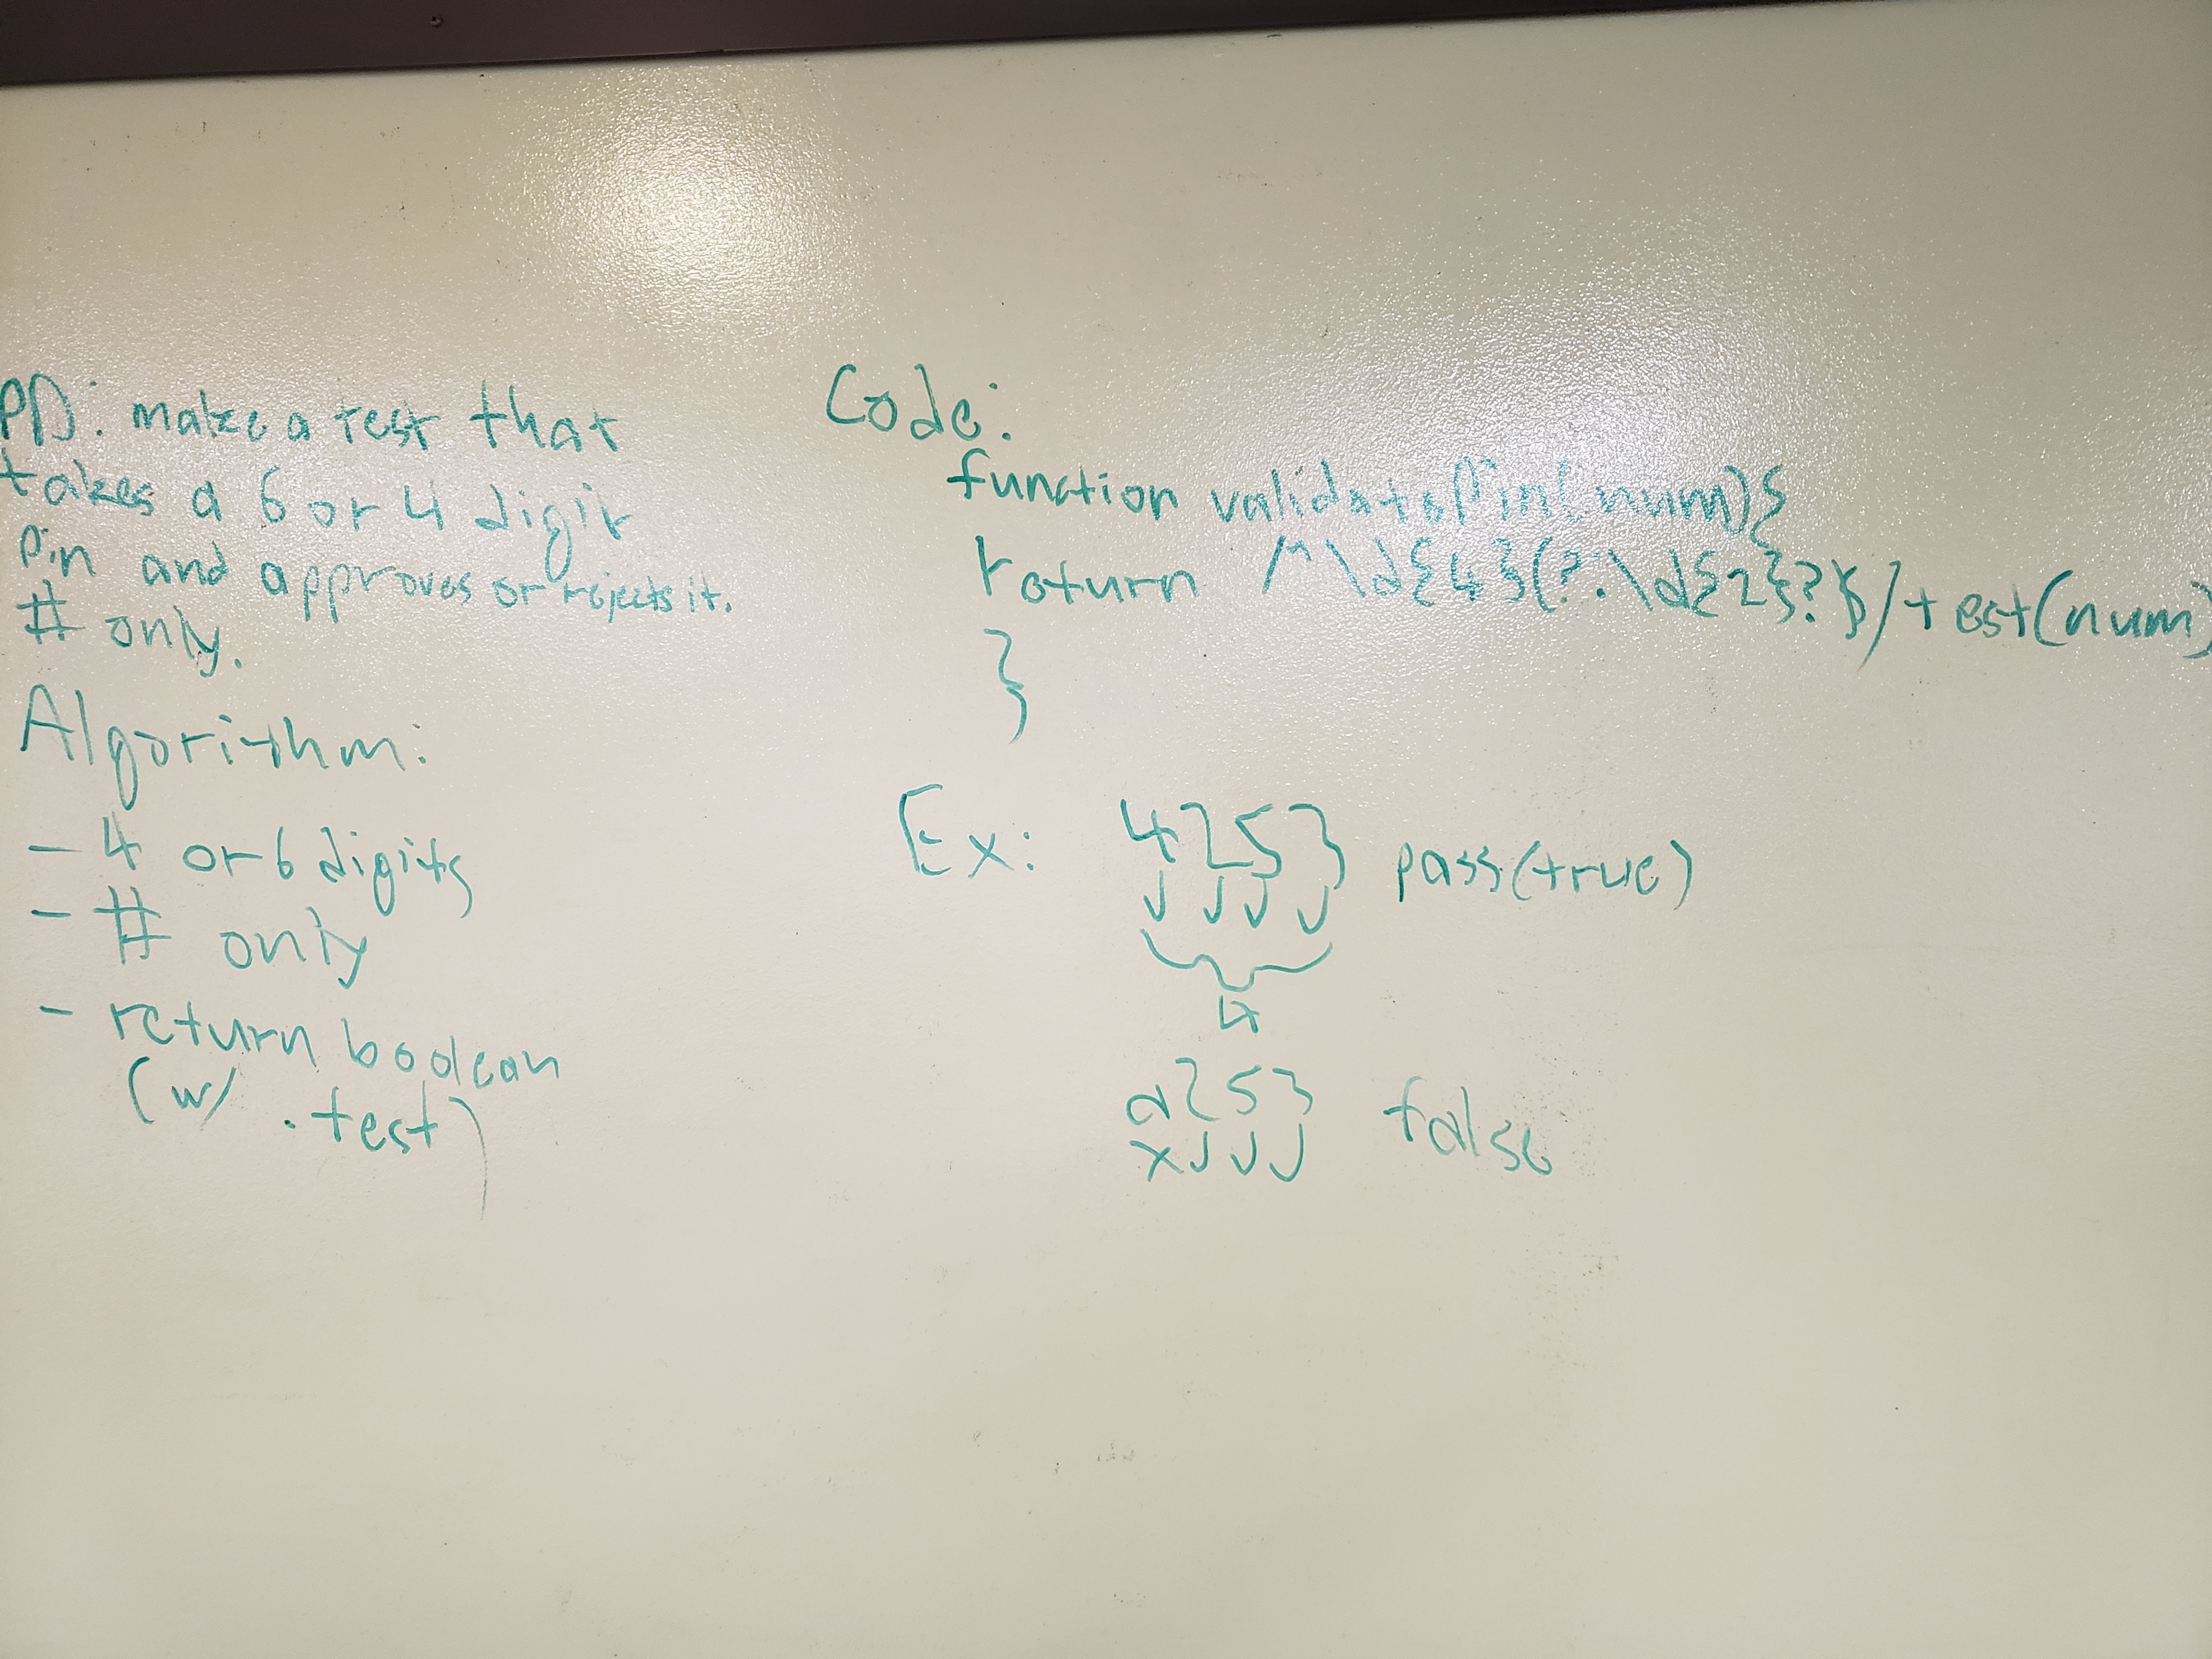 PD: make a test that
takes a 6 or 4 digit
Pin and approves or rejects it.
# only.
Algorithm:
- 4 or 6 digits
- # only
- return boolean
(w/ .test)
Code:
function validatePin(num){
return /^\d{4}(?:\d{2}?$/test(num)
}
Ex: 4253 pass(true)
4
a253 false
x